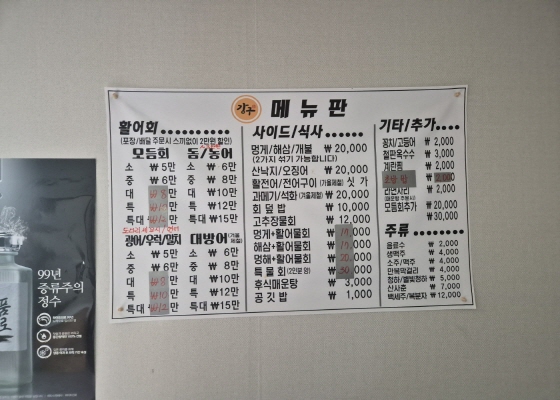 강구 메뉴판
활어회
(포장/배달 주문시 스끼없이 2만원 할인)
모듬회
소 ₩ 5만
중 ₩ 6만
대 ₩ 8만
특 ₩ 만
특대 ₩ 만
돔/농어
소 ₩ 6만
중 ₩ 8만
대 ₩10만
특 ₩12만
특대 ₩15만
광어/우럭/밀치
소 ₩ 5만
중 ₩ 6만
대 ₩ 8만
특 ₩10만
특대 ₩12만
대방어 (겨울제철)
소 ₩ 6만
중 ₩ 8만
대 ₩10만
특 ₩12만
특대 ₩15만
사이드/식사
멍게/해삼/개불 ₩ 20,000
(2가지 섞기 가능합니다)
산낙지/오징어 ₩ 20,000
활전어/전어구이 (가을제철) 싯 가
과메기/석화 (겨울제철) ₩ 20,000
회 덮 밥 ₩ 10,000
고추장물회 ₩ 12,000
멍게+활어물회
해삼+활어물회
멍해+활어물회
특 물 회 (2인분 양)
후식매운탕 ₩ 3,000
공 깃 밥 ₩ 1,000
기타/추가
꽁치/고등어 ₩ 2,000
절판옥수수 ₩ 3,000
계란찜 ₩ 2,000
₩ 2,000
라면사리 ₩ 2,000
모듬회추가 ₩ 20,000
₩ 30,000
주류
음료수 ₩ 2,000
생맥주 ₩ 4,000
소주/맥주 ₩ 4,000
만복막걸리 ₩ 4,000
청하/별빛청하 ₩ 5,000
산사춘 ₩ 7,000
백세주/복분자 ₩ 12,000
99년
증류주의
정수